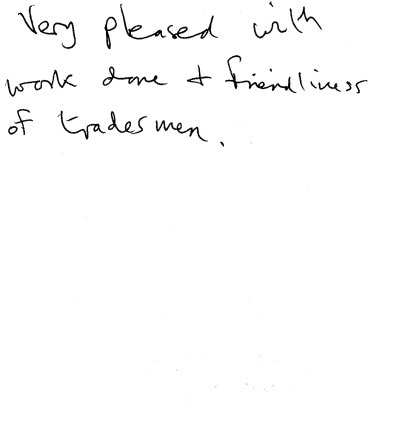 Very pleased with
work done + friendliness
of tradesmen.